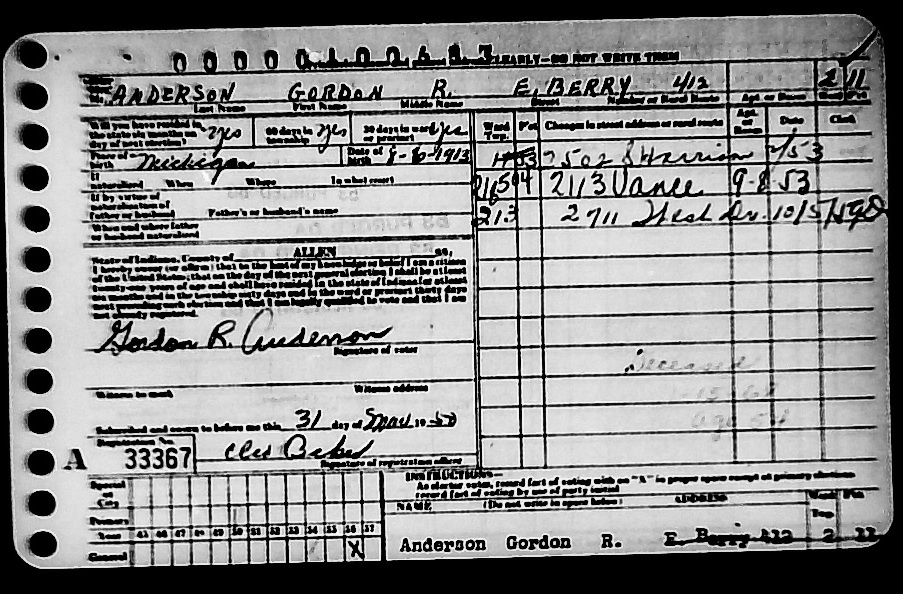 CLEARLY—DO NOT WRITE THIS
ANDERSON GORDON R. E. BERRY 412 2 11
Last Name First Name Middle Name Street Number or Rural Route Apt. or Room Ward Pct.
Will you have resided in the state six months on day of next election? Yes 60 days in township? Yes 30 days in ward or precinct Yes Ward Twp. Pct. Changes in street address or rural route Apt. or Room Date Clerk
Place of birth Michigan Date of birth 8-6-1913 2502 S Harrison 2/53
If naturalized When Where In what court 504 2113 Vance 9-8-53
If by virtue of naturalization of father or husband Father's or husband's name 213 2711 West Dr. 10/5
When and where father or husband naturalized
State of Indiana, County of ALLEN ss,
I hereby swear (or affirm) that to the best of my knowledge or belief I am a citizen
of the United States; that on the day of the next general election I shall be at least
twenty-one years of age and shall have resided in the state of Indiana for at least
six months and in the township sixty days and in the ward or precinct thirty days
preceding such election and that I am legally qualified to vote and that I am
not already registered.
Gordon R. Anderson
Signature of voter
Deceased
Witness to mark Witness address
Subscribed and sworn to before me this 31 day of 19 50
Registration No.
A 33367
Signature of registration officer
INSTRUCTIONS—
As elector votes, record fact of voting with an "X" in proper space except at primary elections
record fact of voting by use of party initial
NAME (Do not write in space below) ADDRESS Ward Twp. Pct.
Special or City
Primary
Year 45 46 47 48 49 50 51 52 53 54 55 56 57
General X
Anderson Gordon R. E. Berry 412 2 11